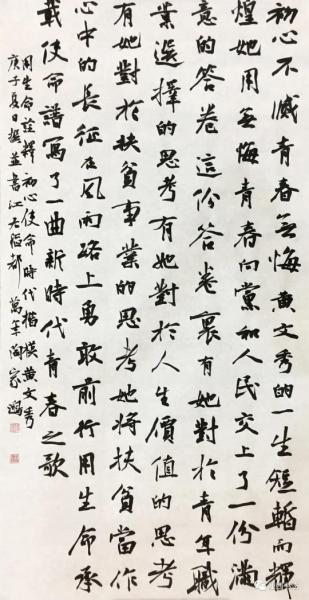 初心不滅青春無悔黄文秀的一生短暫而輝
煌她用無悔青春向黨和人民交上了一份滿
意的答卷這份答卷裏有她對於青年職
業選擇的思考有她對於人生價值的思考
有她對於扶貧事業的思考她將扶貧當作
心中的長征在風雨路上勇敢前行用生命承
載使命譜寫了一曲新時代青春之歌
用生命詮釋初心使命時代楷模黄文秀
庚子夏日撰並書江右 萬年 家鴻